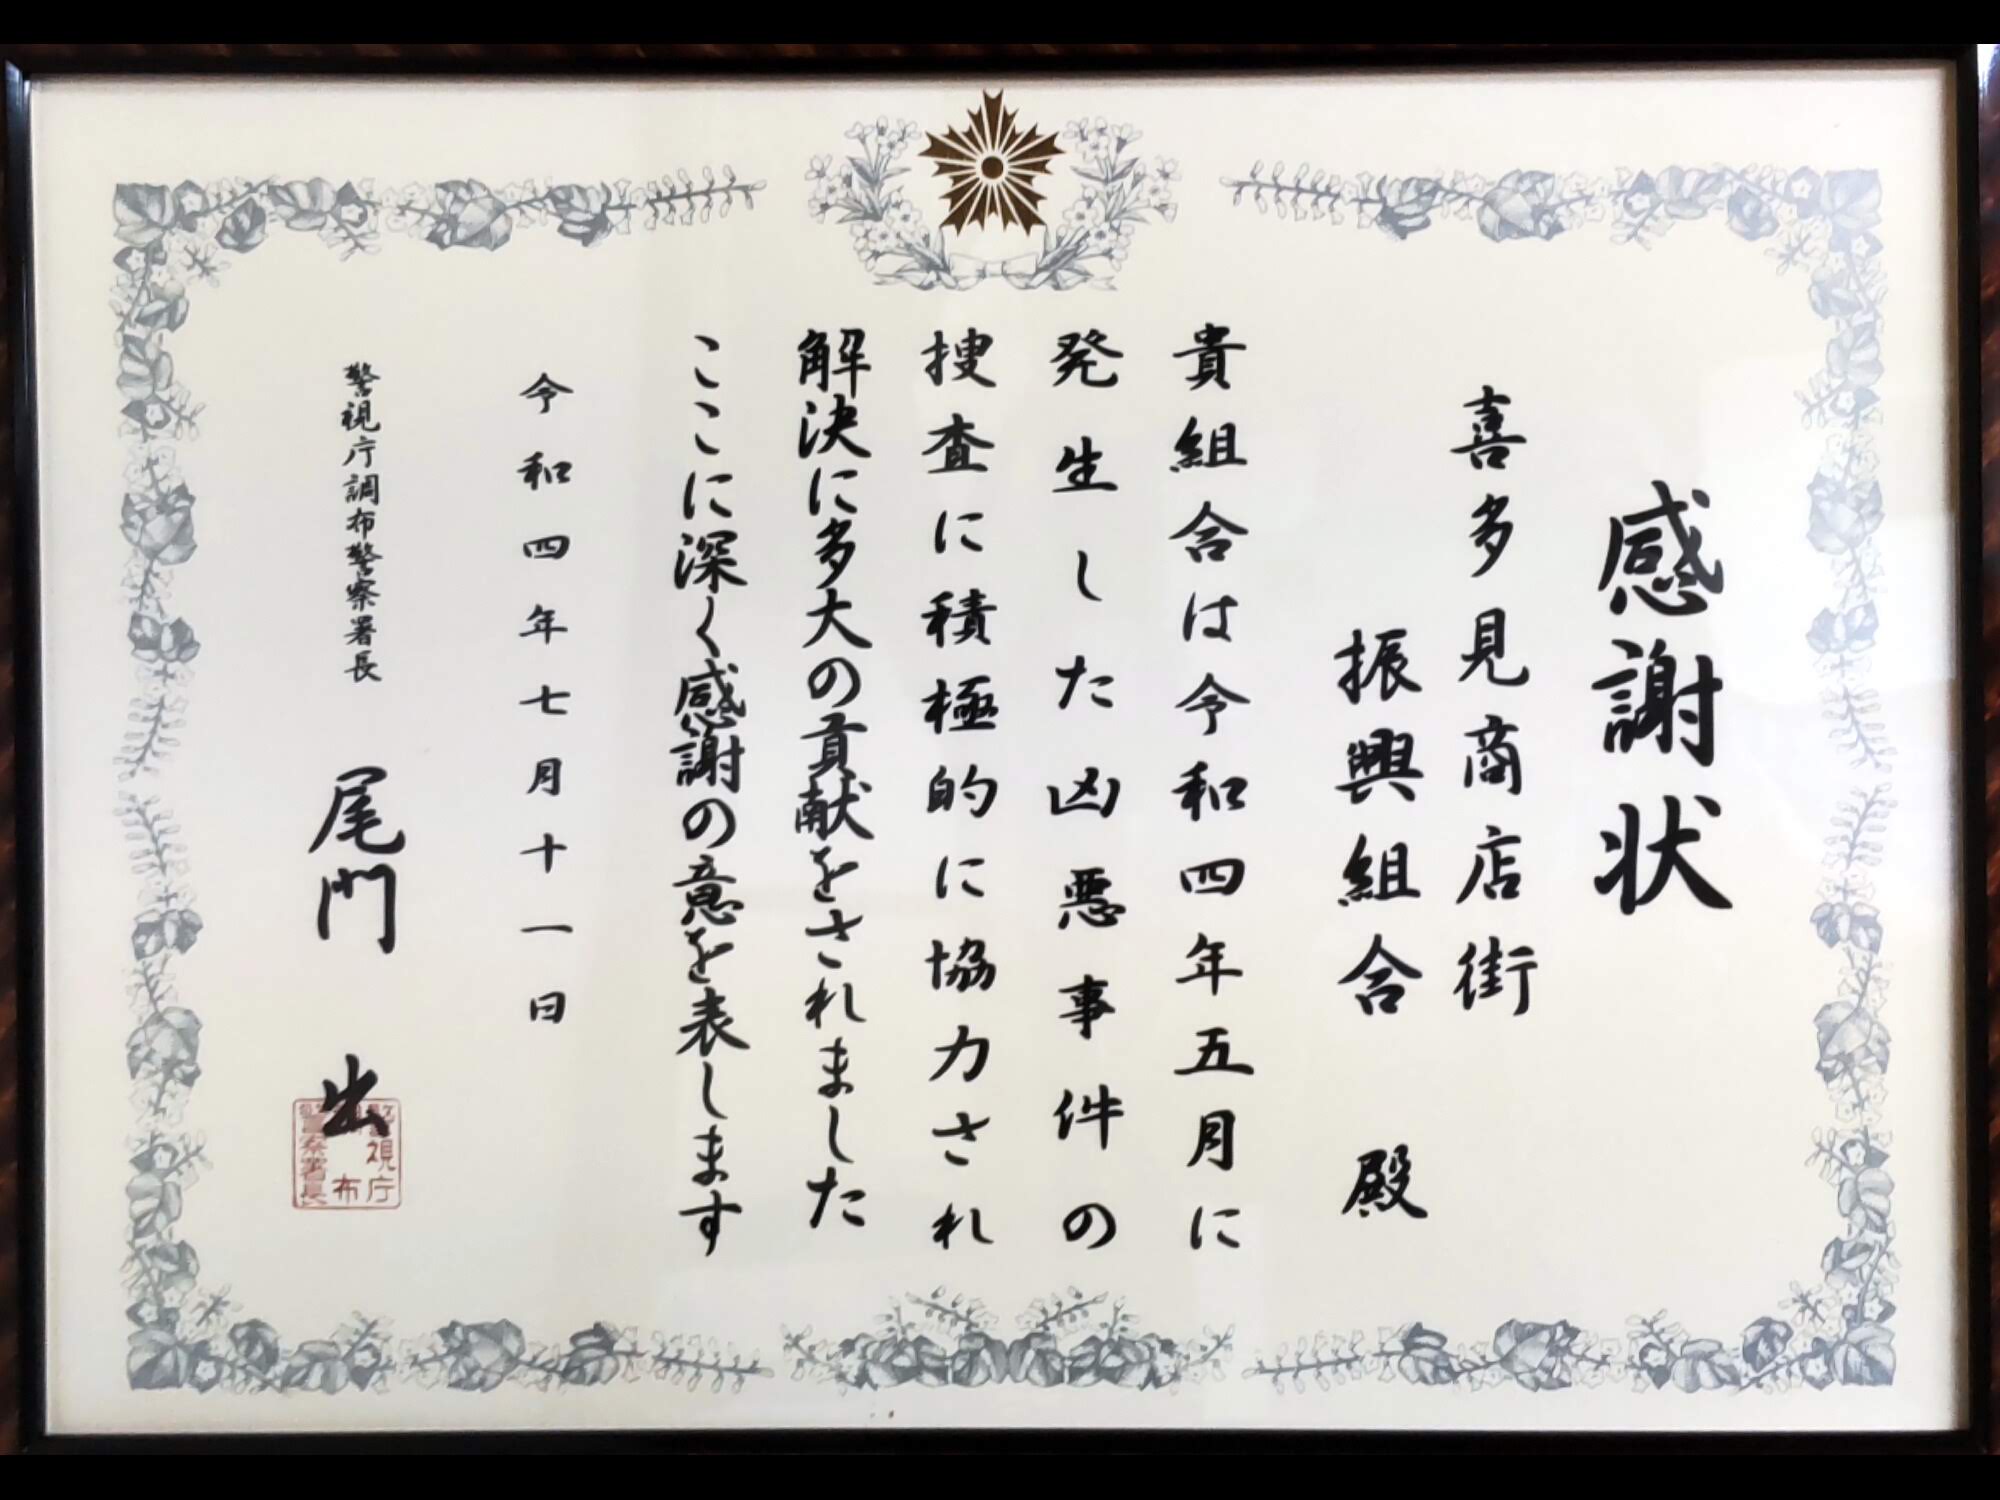 感謝状
喜多見商店街
振興組合 殿
貴組合は令和四年五月に
発生した凶悪事件の
捜査に積極的に協力され
解決に多大の貢献をされました
ここに深く感謝の意を表します
令和四年七月十一日
警視庁調布警察署長 尾門 出
警視庁
調布
警察署長